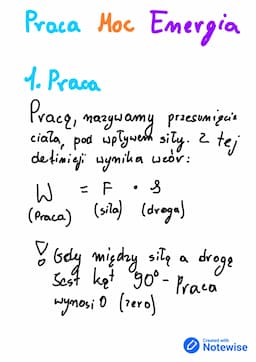 Praca Moc Energia
1. Praca
Pracą, nazywamy przesunięcie
ciała, pod wpływem siły. Z tej
definicji wynika wzór:
W = F · s
(Praca) (siła) (droga)
! Gdy między siłą a drogą
jest kąt 90° - Praca
wynosi 0 (zero)
Created with
Notewise